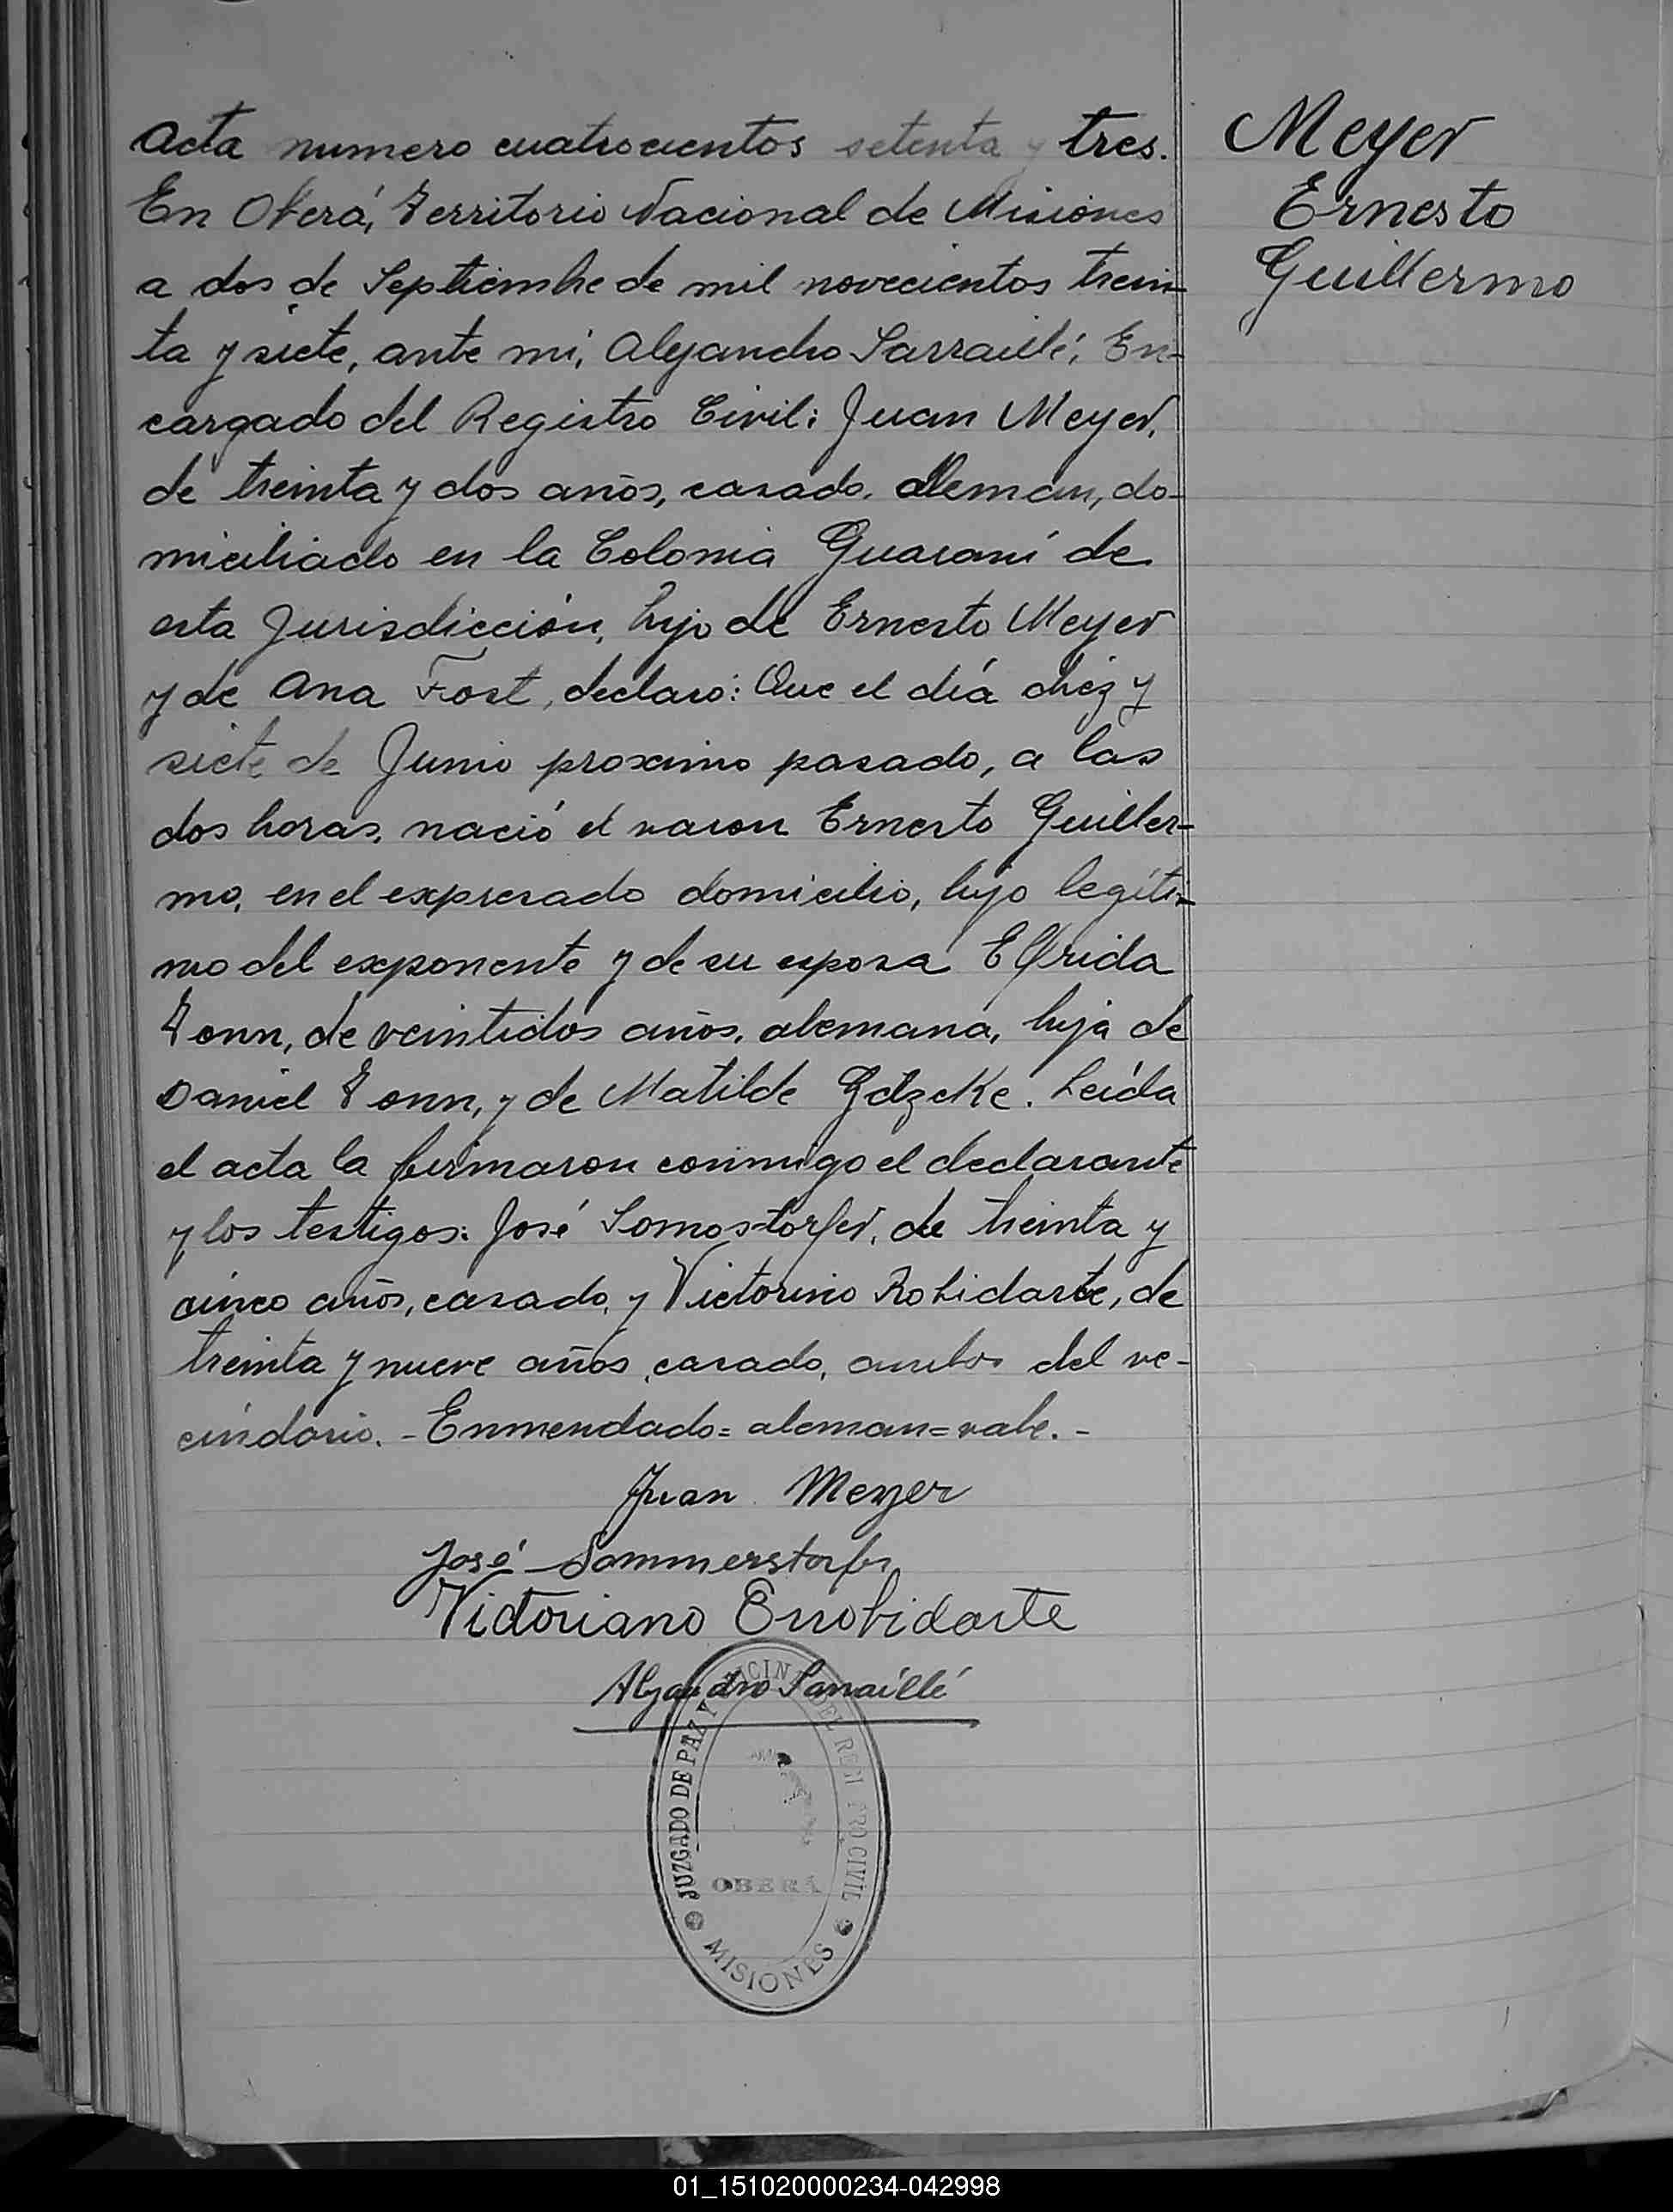 Acta numero cuatrocientos setenta y tres.
Meyer
Ernesto
Guillermo
En Oberá, Territorio Nacional de Misiones
a dos de Septiembre de mil novecientos trein-
ta y siete, ante mi, Alejandro Sarraillé, En-
cargado del Registro Civil: Juan Meyer,
de treinta y dos años, casado, aleman, do-
miciliado en la Colonia Guaraní de
esta Jurisdicción, hijo de Ernesto Meyer
y de Ana Fost, declaró: Que el día diez y
siete de Junio proximo pasado, a las
dos horas, nació el varon Ernesto Guiller-
mo, en el expresado domicilio, hijo legíti-
mo del exponente y de su esposa Elfrida
Tonn, de veintidos años, alemana, hija de
Daniel Tonn, y de Matilde . Leída
el acta la firmaron conmigo el declarante
y los testigos: José Somostorfer, de treinta y
cinco años, casado, y Victorino Robidarte, de
treinta y nueve años, casado, ambos del ve-
cindario. - Enmendado = aleman = vale. -
Juan Meyer
José Sommerstorfer
Victoriano Errobidarte
Alejandro Sarraillé
JUZGADO DE PAZ Y OFICINA DEL REGISTRO CIVIL
OBERÁ
MISIONES
01_151020000234-042998